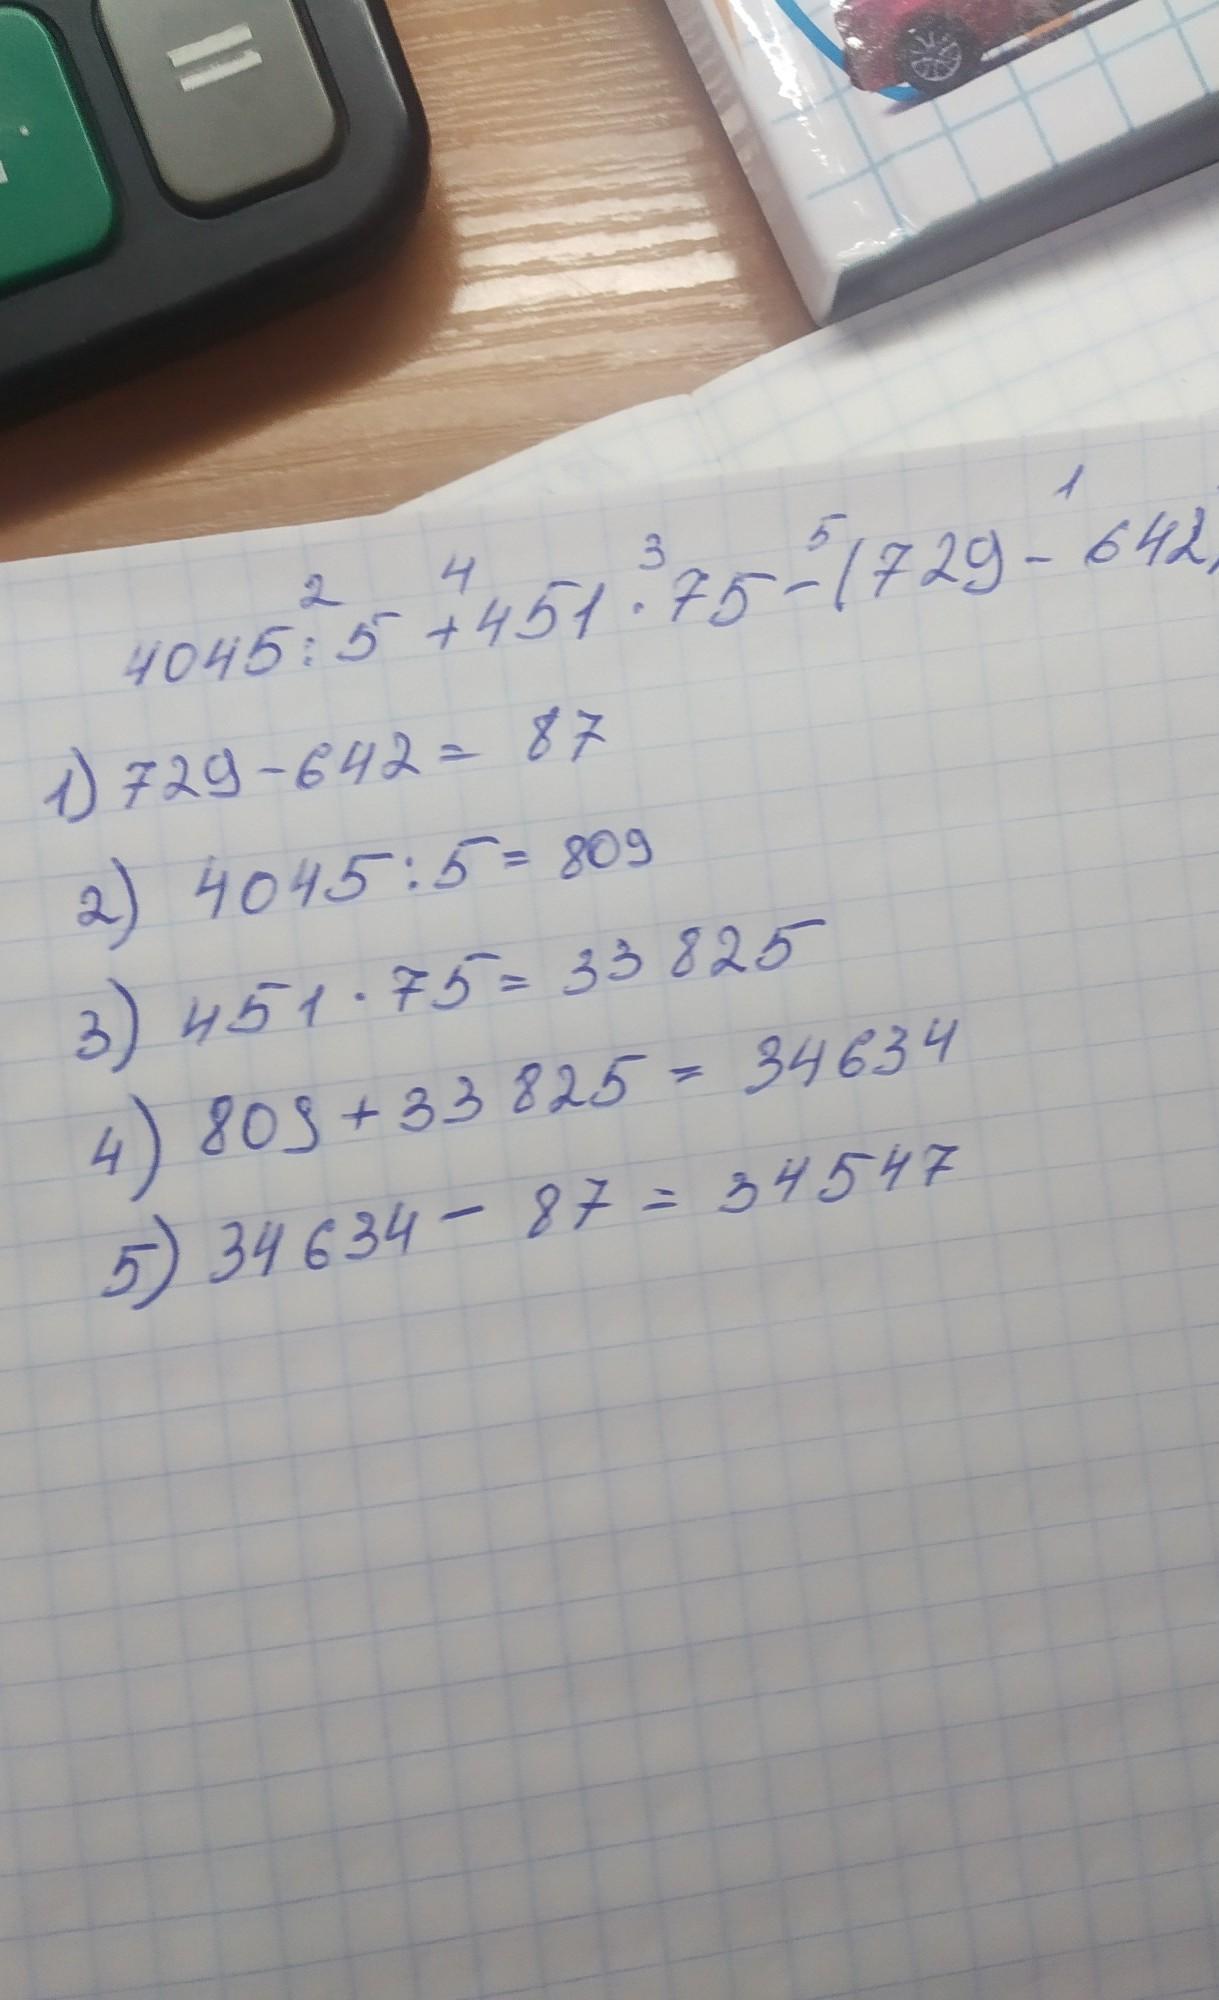 =
2 4 3 5 1
4045 : 5 + 451 · 75 - (729 - 642)
1) 729 - 642 = 87
2) 4045 : 5 = 809
3) 451 · 75 = 33 825
4) 809 + 33 825 = 34634
5) 34634 - 87 = 34547